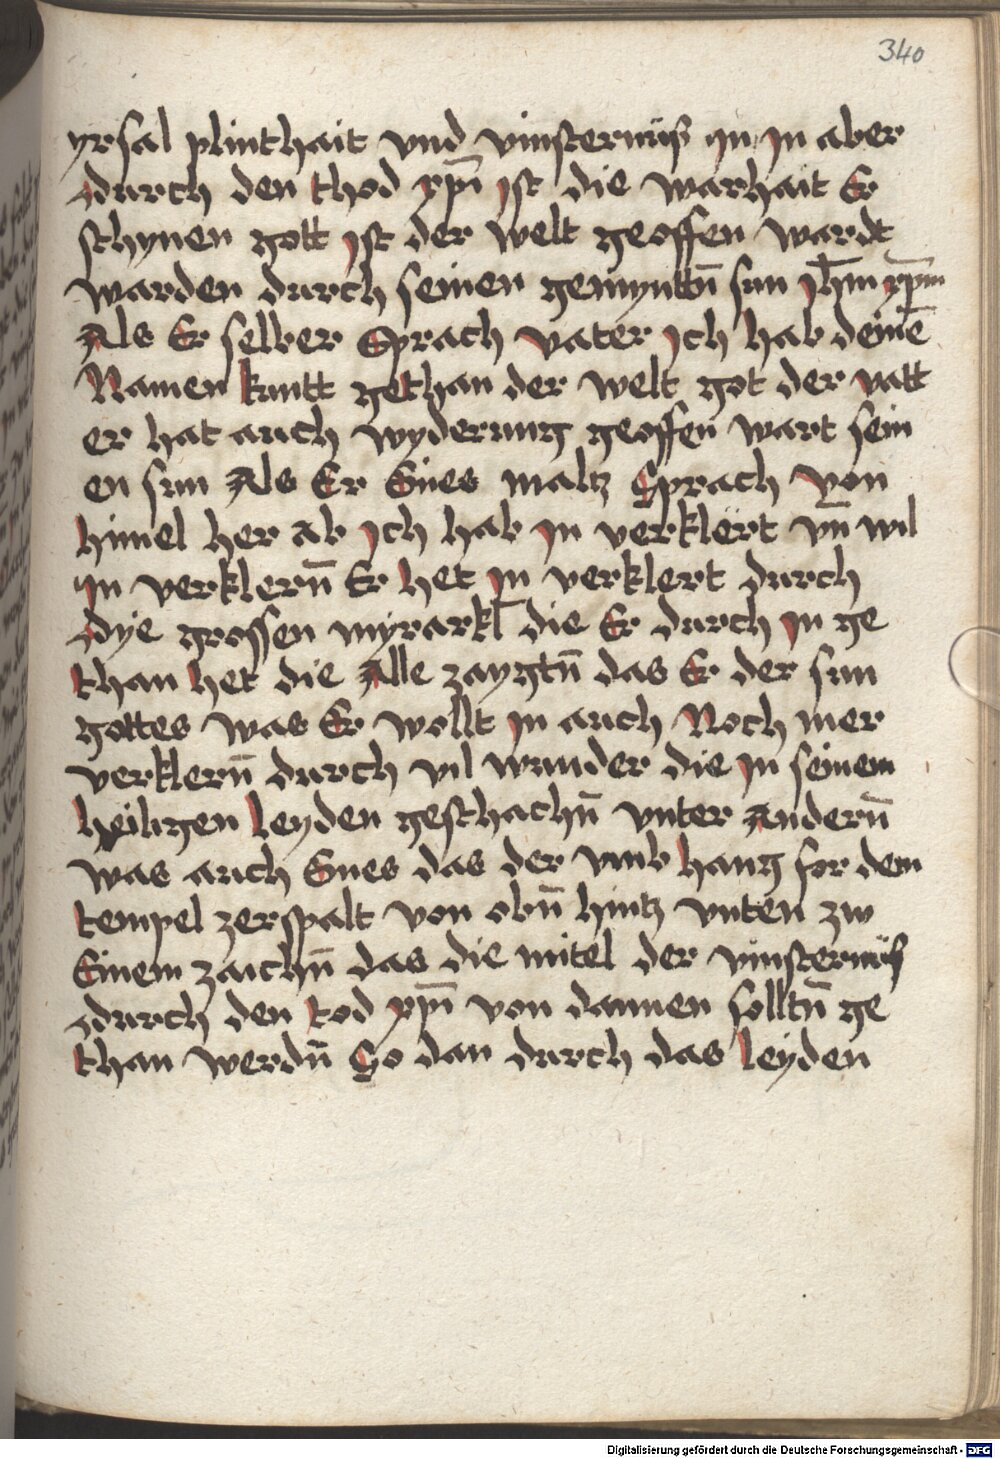 340
yrsal plinthait vnd vinsternüß in in aber
durch den thod xp̄i ist die warhait Er
schynen gott ist der welt geoffen wardt
warden durch seinen gemyntn̄ sun ih̄m xp̄m
Als Er selber Sprach vater ich hab deinē
Namen kuntt gethan der welt got der vatt
er hat auch wyderung geoffen wart sein
en sun Als Er Eines maltz Sprach von
himel her ab ich hab in verklert vn̄ wil
in verklern̄ Er het in verklert durch
dye grossen myrarkl̄ die Er durch in ge
than het die Alle zaygtn̄ das Er der sun
gottes was Er wollt in auch Noch mer
verklern̄ durch vil wunder die in seinem
heiligen leyden geschachn̄ vnter Andern̄
was auch Eines das der vmb hang for dem
tempel zerspalt von obn̄ hintz vnten zw
Einem zaichn̄ das die mitel der vinsternüß
durch den tod xp̄i von dannen solltn̄ ge
than werdn̄ So dan durch das leyden
Digitalisierung gefördert durch die Deutsche Forschungsgemeinschaft - DFG